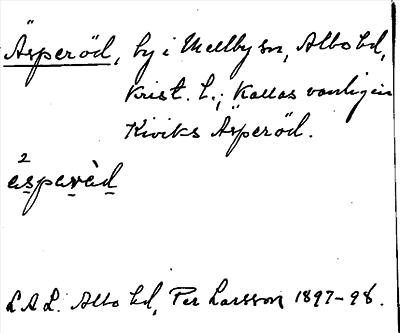 Äsperöd, by i Mellby sn, Albo hd,
Krist. l.; Kallas vanligen
Kiviks Äsperöd.
2
espàrǜd
L A L. Albo hd, Per Larsson 1897-98.